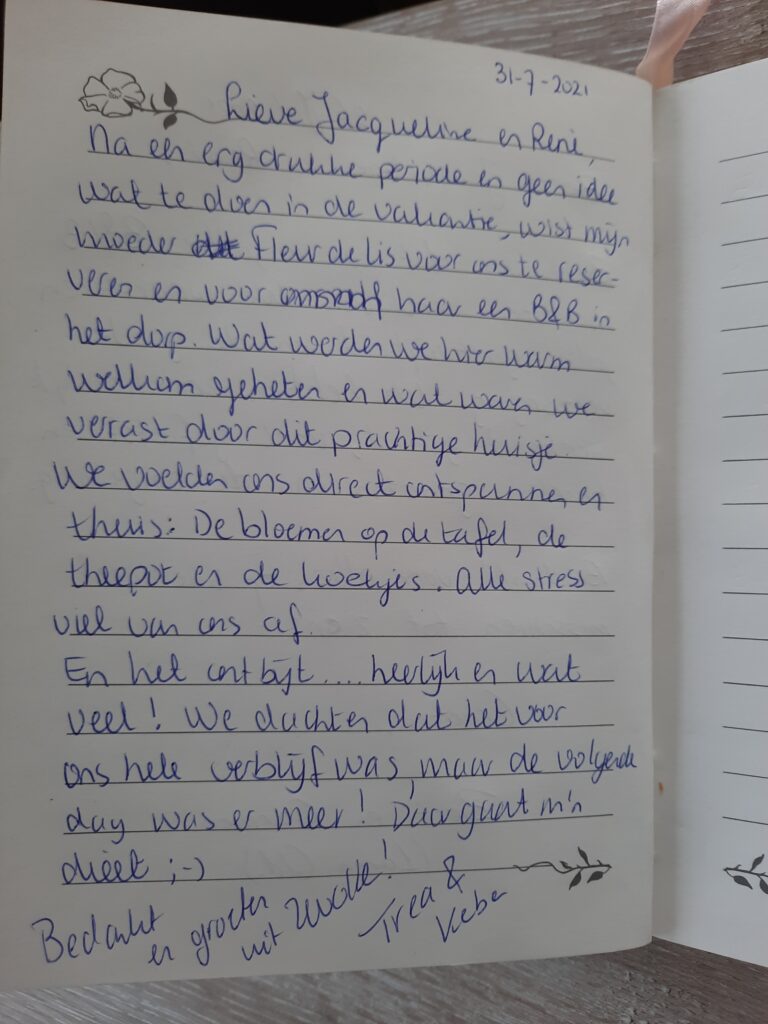 31-7-2021
Lieve Jacqueline en René,
Na een erg drukke periode en geen idee
wat te doen in de vakantie, wist mijn
moeder Fleur de lis voor ons te reser-
veren en voor haar een B&B in
het dorp. Wat werden we hier warm
welkom geheten en wat waren we
verrast door dit prachtige huisje.
We voelden ons direct ontspannen en
thuis: De bloemen op de tafel, de
theepot en de koekjes. Alle stress
viel van ons af.
En het ontbijt .... heerlijk en wat
veel! We dachten dat het voor
ons hele verblijf was, maar de volgende
dag was er meer! Daar gaat m'n
dieet ;-)
Bedankt en groeten uit Zwolle!
Trea &